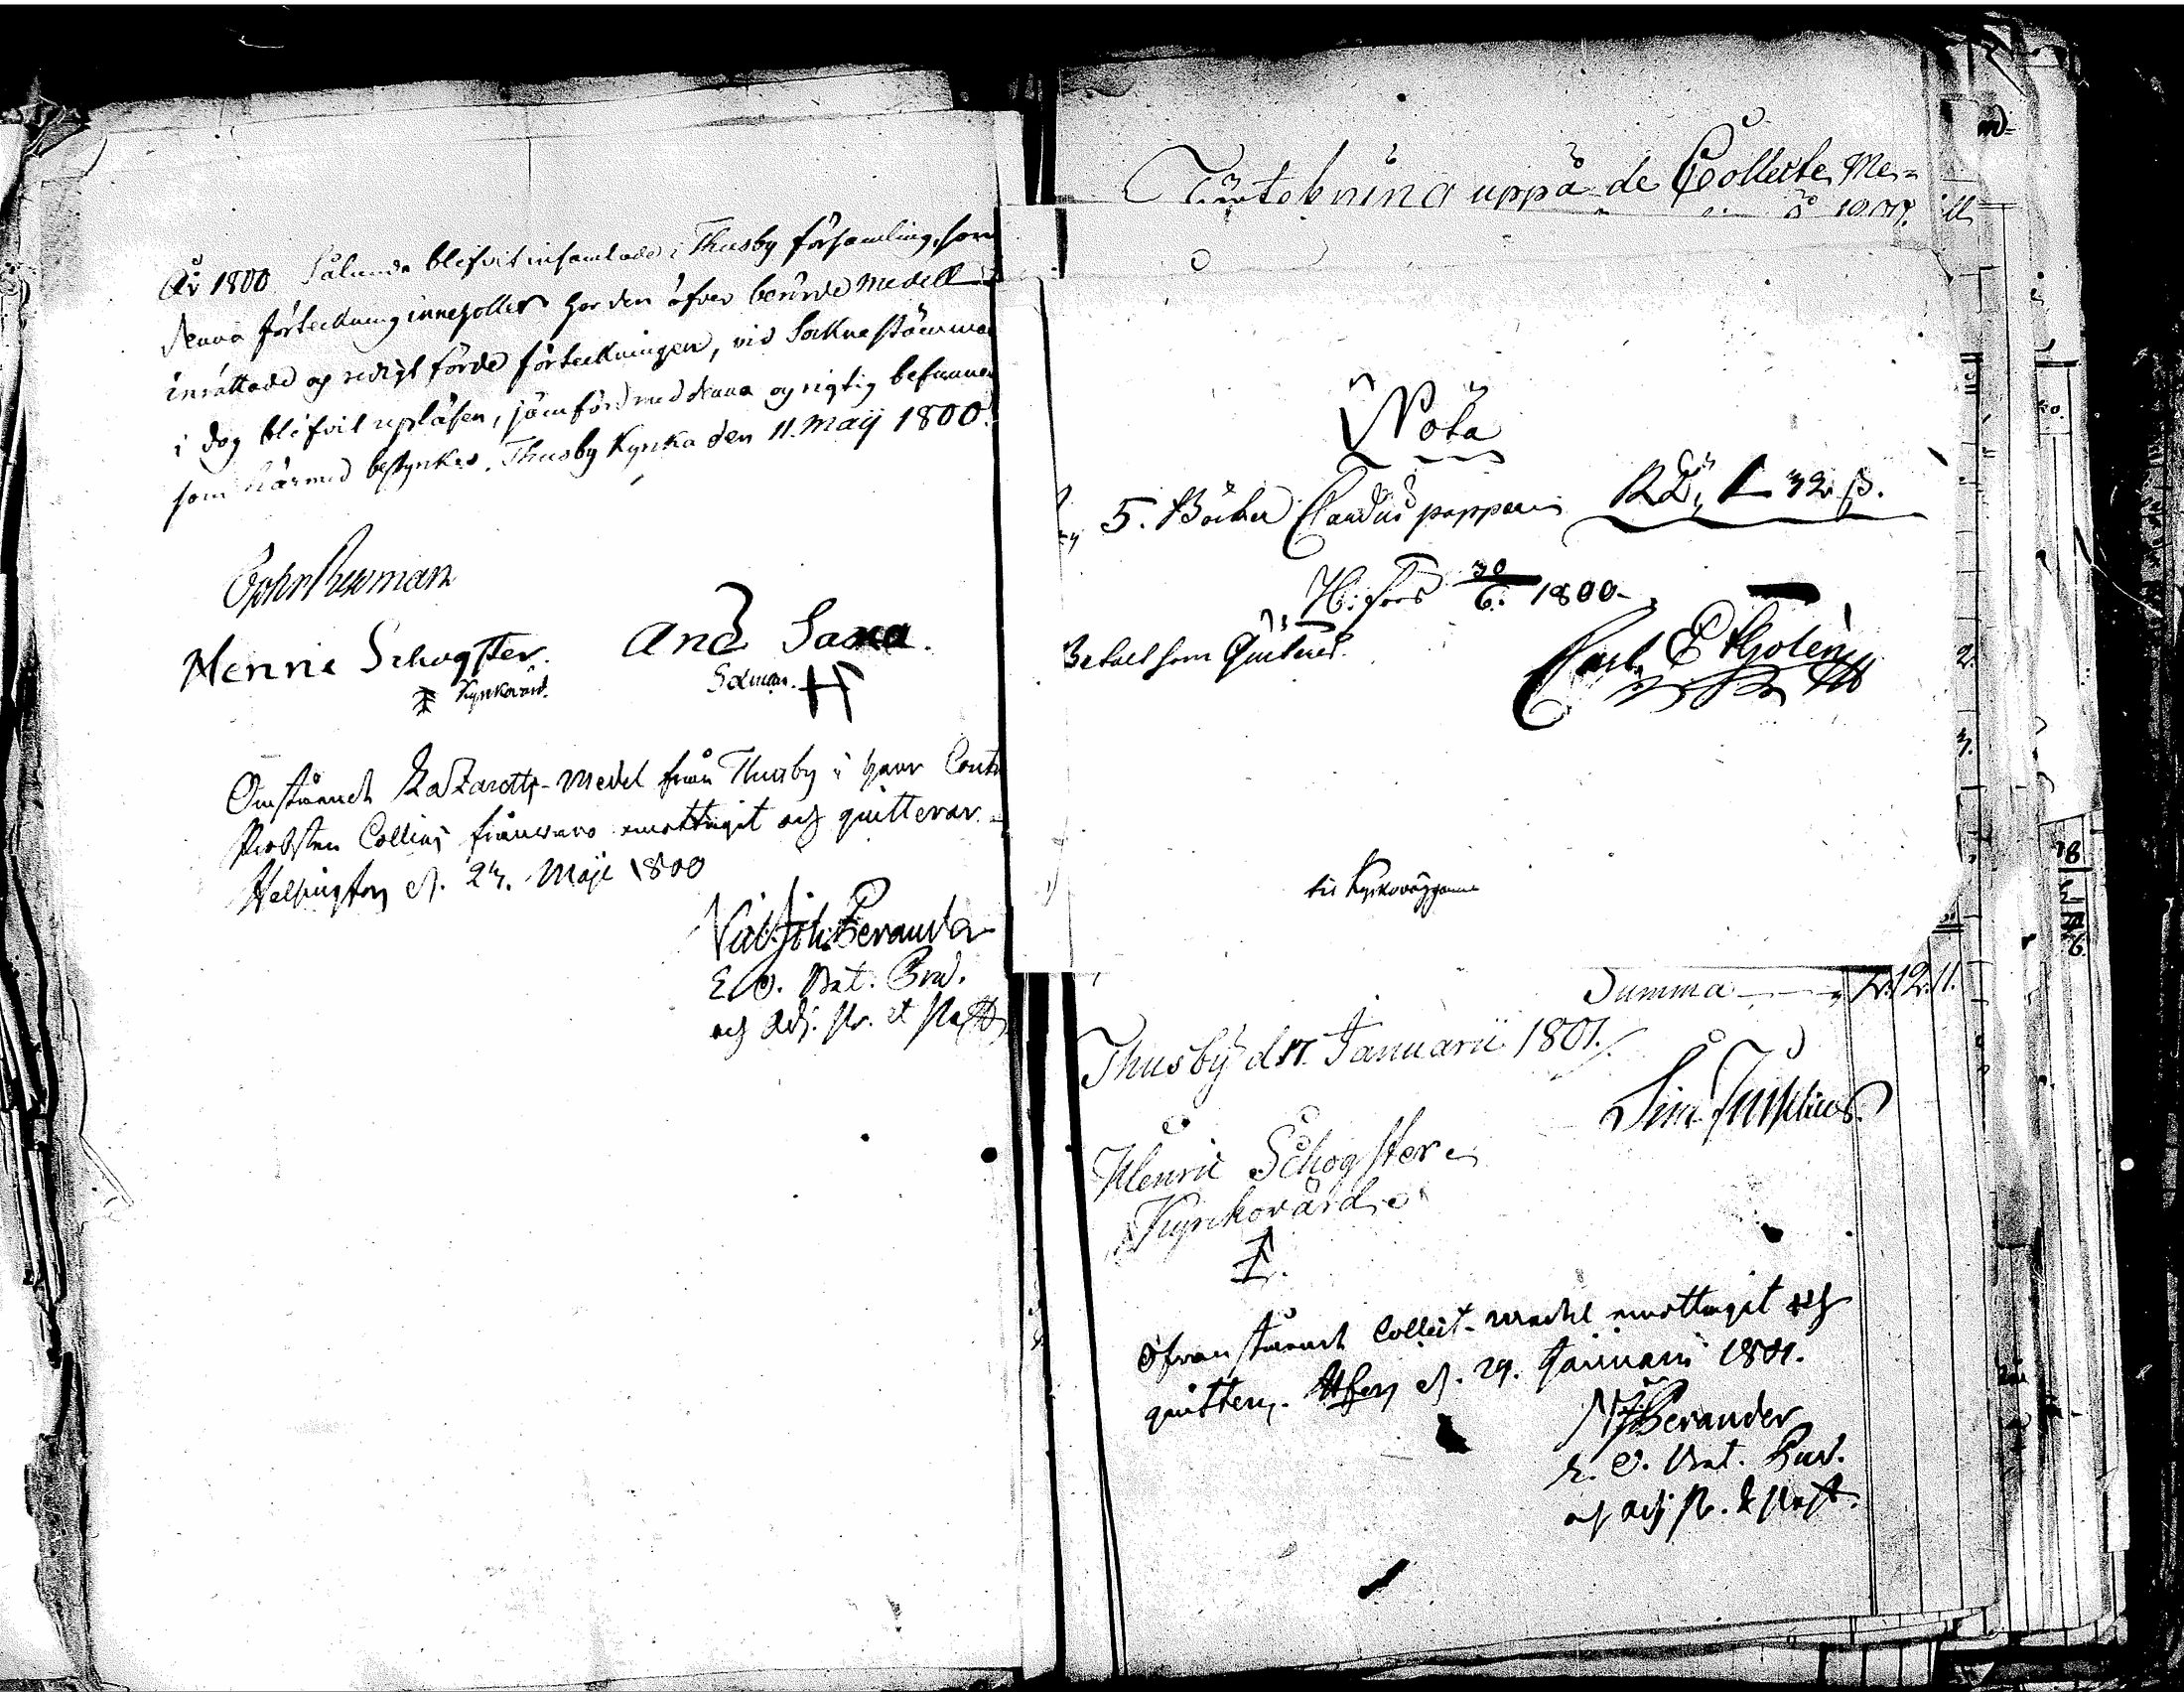 År 1800 Sålunda blifvit insamlade i Thusby församling, som
denna förteckning innehåller har den öfver berörde medell
inrättade og redigt förde förteckningen, vid Sockne stämma
i dag blifvit upläsen, jämförd med denna og rigtig befunnen
som härmed bestyrkes. Thusby Kyrka den 11. Maij 1800.
Henric Schogster. And Saxa.
Kyrkovärd. Sexman.
Omstående Lazaretts-Medel från Thusby i herr Contr
Probsten Collins frånvaro emottagit och quitterar
Helsingfors d. 23. Maji 1800
Joh: Berander
E. O. Bat. Pred.
och Adj. 
Förtekning uppå de Collecte Me=
Nota
5. Böcker Cardus papper RD, 1 32 ß.
H:fors 30/6. 1800
Betalt som Quiteras. Carl E
til Kyrkoväggarne
Summa 2. 12. 11.
Thusby d 17. Januarii 1801.
Henric Schogster
Kyrkovärd
Ofvanstående Collect-medel emottagit och
quitterar. H:fors d. 29. Januarii 1801.
Berander
E. O. Bat. Pred.
och Adj.